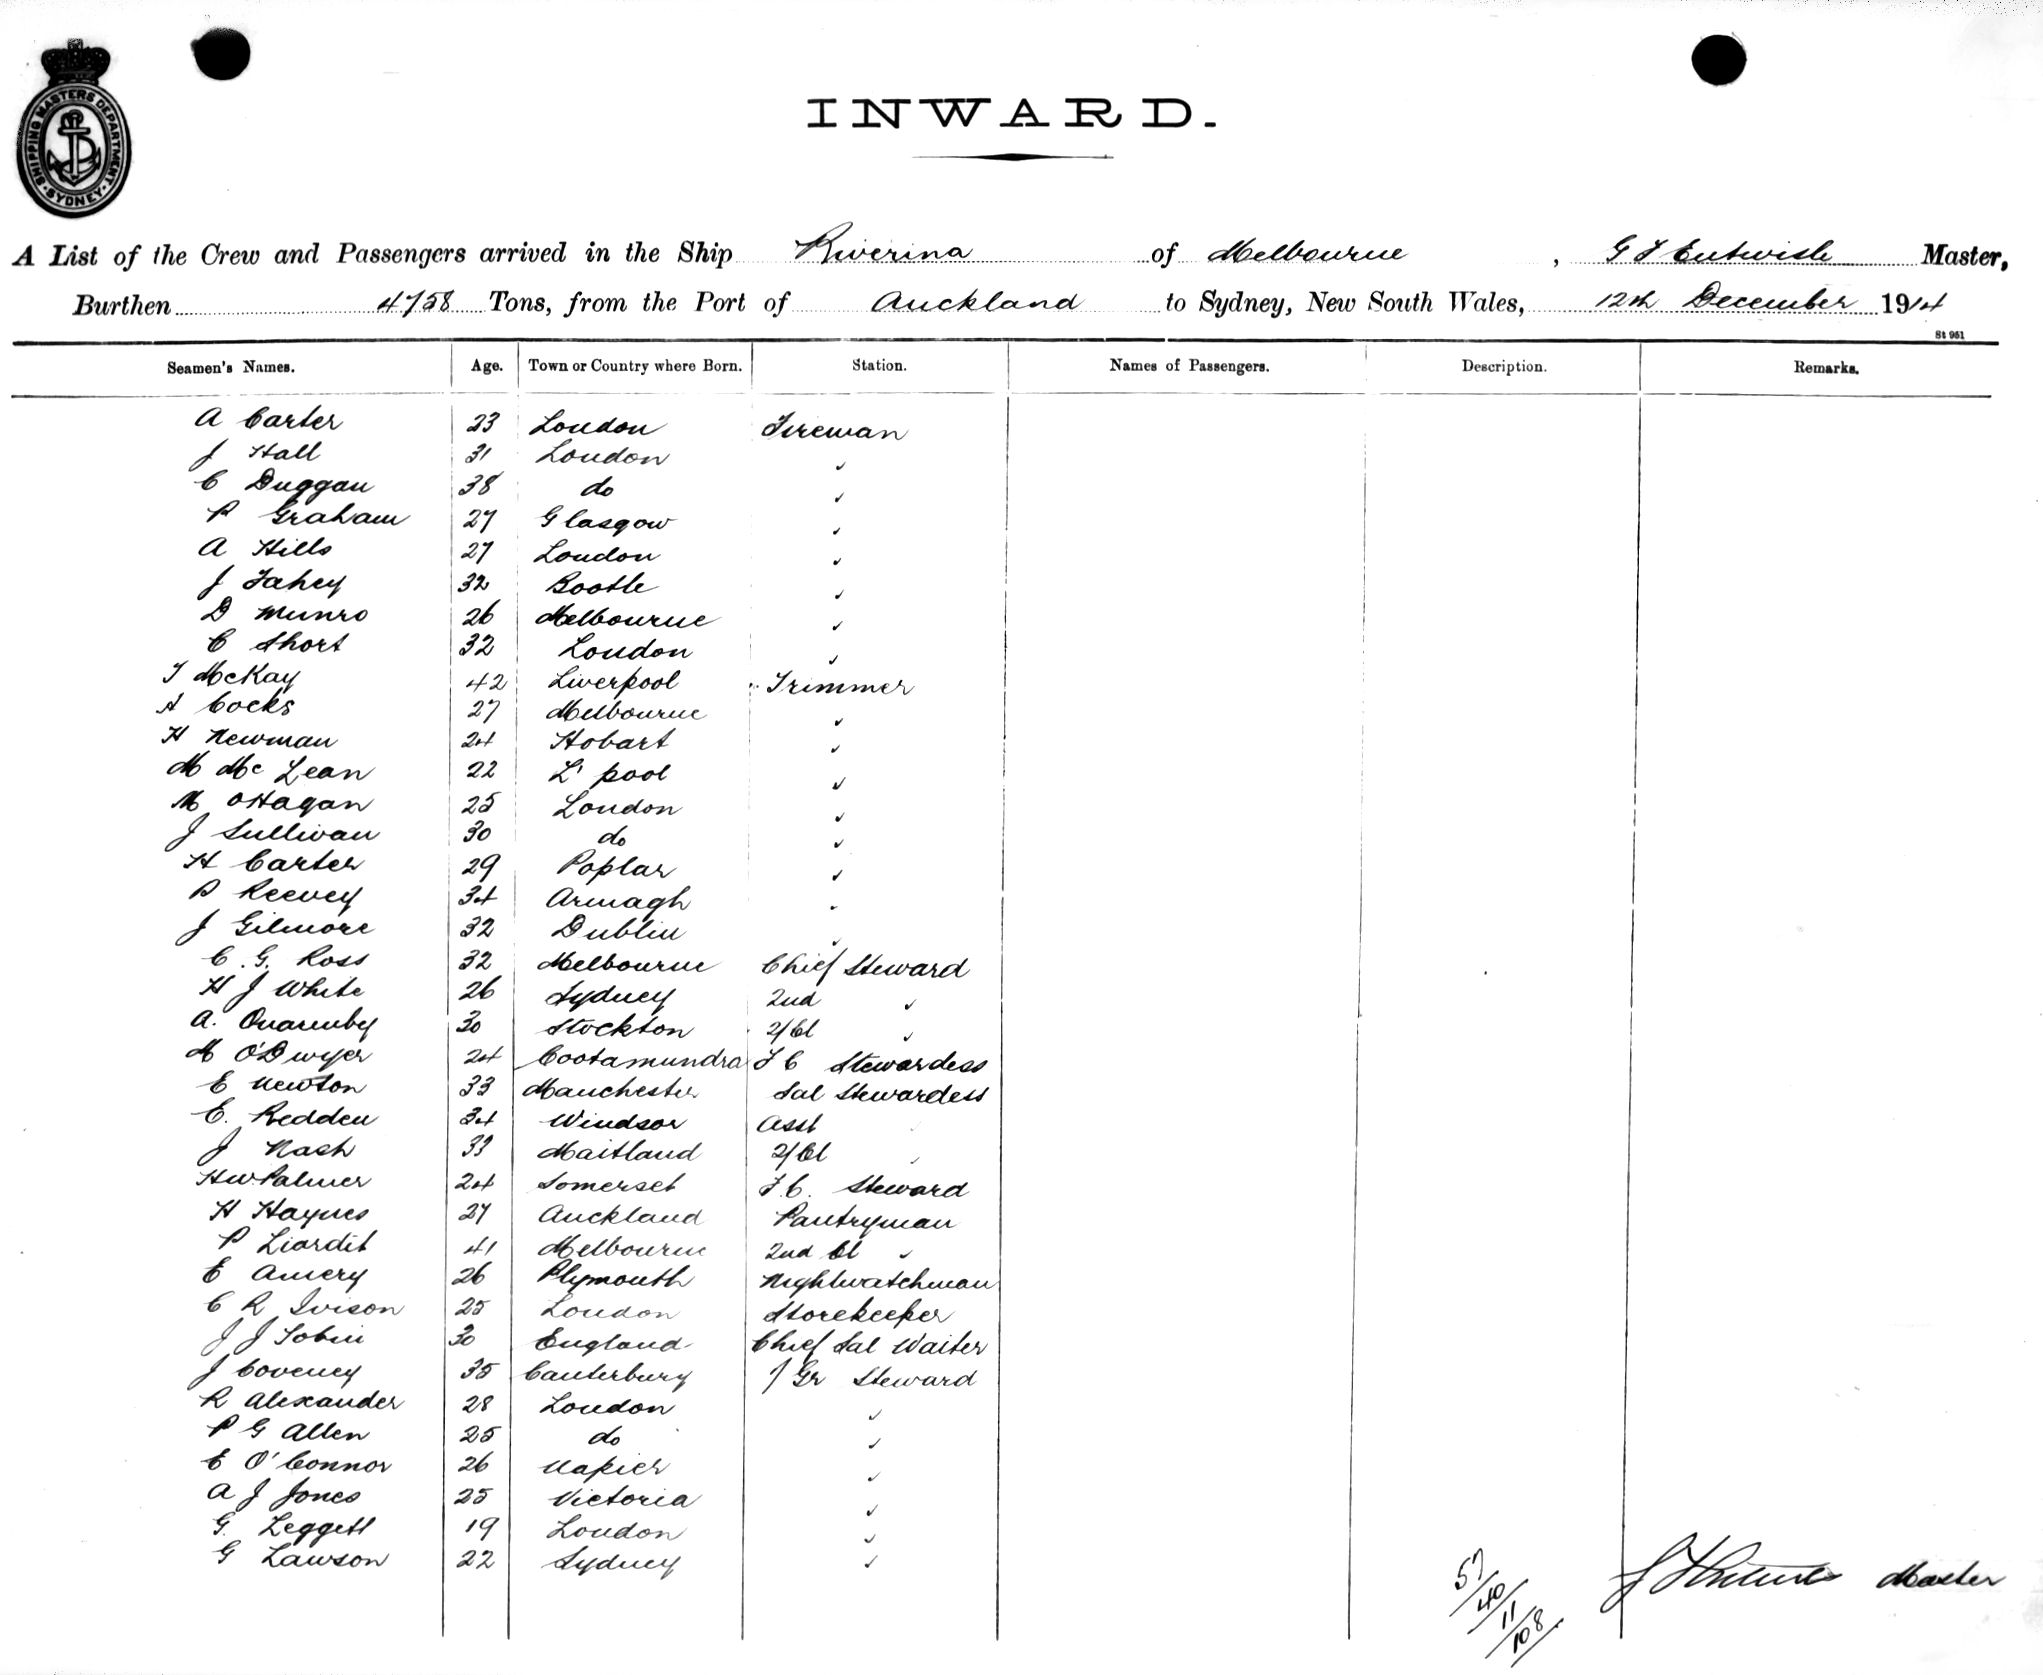 SHIPPING MASTERS DEPARTMENT · SYDNEY ·
INWARD.
A List of the Crew and Passengers arrived in the Ship Riverina of Melbourne, G F Entwisle Master,
Burthen 4758 Tons, from the Port of Auckland to Sydney, New South Wales, 12th December 1914
St 951
Seamen's Names. Age. Town or Country where Born. Station. Names of Passengers. Description. Remarks.
A Carter 23 London Fireman
J Hall 31 London "
C Duggan 38 do "
P Graham 27 Glasgow "
A Hills 27 London "
J Fahey 32 Bootle "
D Munro 26 Melbourne "
C Short 32 London "
T McKay 42 Liverpool Trimmer
A Cocks 27 Melbourne "
H Newman 24 Hobart "
M McLean 22 L'pool "
M OHagan 25 London "
J Sullivan 30 do "
H Carter 29 Poplar "
P Reevey 34 Armagh "
J Gilmore 32 Dublin "
C. G. Ross 32 Melbourne Chief Steward
H J White 26 Sydney 2nd "
A. Quarmby 30 Stockton 2/Cl "
M O'Dwyer 24 Cootamundra F C Stewardess
E Newton 33 Manchester Sal Stewardess
E. Redden 34 Windsor Asst "
J Nash 33 Maitland 2/Cl "
H W Palmer 24 Somerset F. C. Steward
H Haynes 27 Auckland Pantryman
P Liardet 41 Melbourne 2nd Cl "
E Amery 26 Plymouth Nightwatchman
C R Ivison 25 London Storekeeper
J J Tobin 30 England Chief Sal Waiter
J Coveney 35 Canterbury F Gr Steward
R Alexander 28 London "
P G Allen 25 do "
E O'Connor 26 Napier "
A J Jones 25 Victoria "
G. Leggett 19 London "
G Lawson 22 Sydney "
57/40/11/108 Master